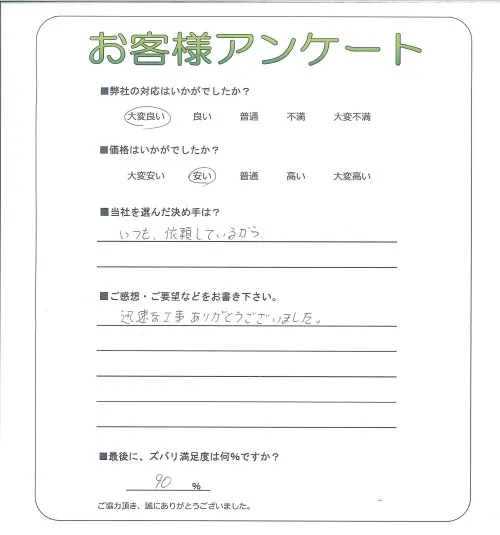 お客様アンケート
■弊社の対応はいかがでしたか？
大変良い 良い 普通 不満 大変不満
■価格はいかがでしたか？
大変安い 安い 普通 高い 大変高い
■当社を選んだ決め手は？
いつも、依頼しているから
■ご感想・ご要望などをお書き下さい。
迅速な工事ありがとうございました。
■最後に、ズバリ満足度は何%ですか？
90 %
ご協力頂き、誠にありがとうございました。